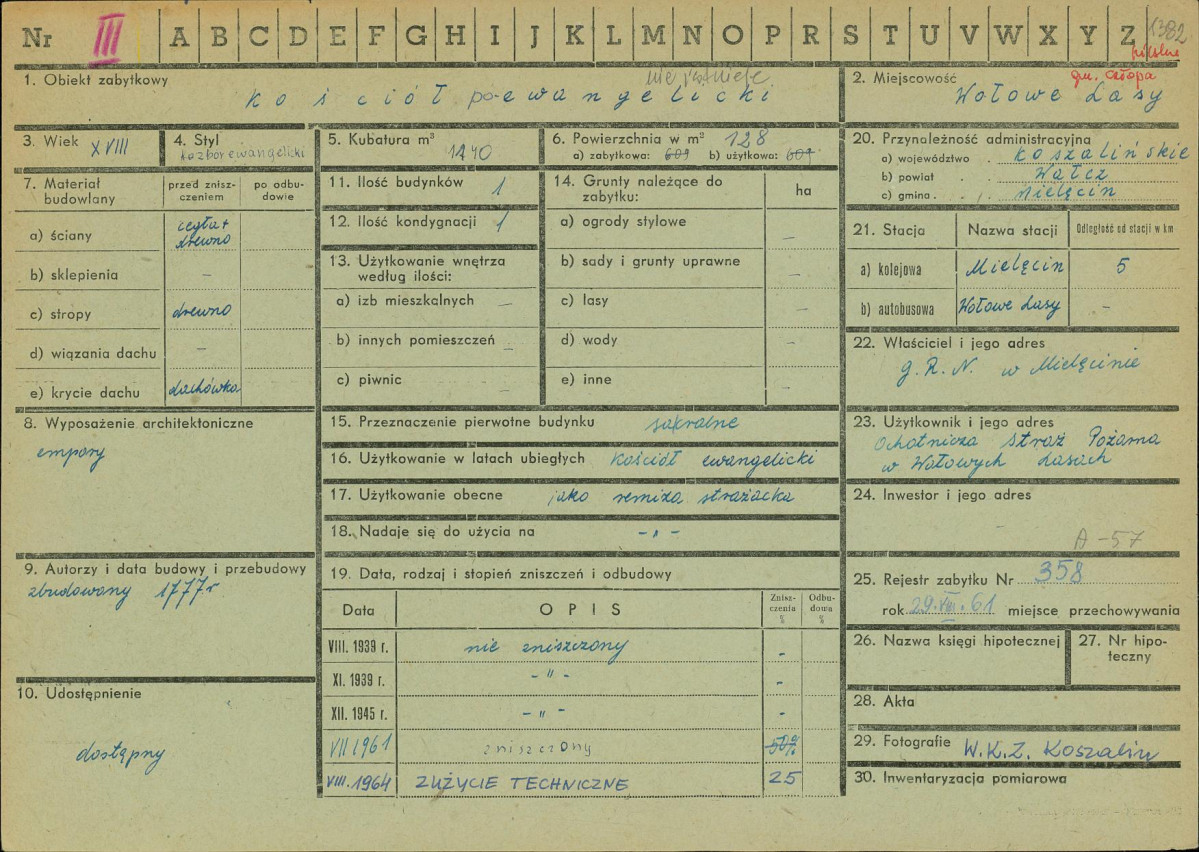 Nr III A B C D E F G H I J K L M N O P R S T U V W X Y Z 1382
pilskie
gm. Człopa
1. Obiekt zabytkowy nie istnieje
kościół po-ewangelicki
2. Miejscowość
Wołowe Lasy
3. Wiek XVIII
4. Styl
5. Kubatura m³
1440
6. Powierzchnia w m² 128
a) zabytkowa: 609 b) użytkowa: 609
7. Materiał budowlany
przed zniszczeniem
po odbudowie
a) ściany cegła + drewno
b) sklepienia –
c) stropy drewno
d) wiązania dachu –
e) krycie dachu dachówka
8. Wyposażenie architektoniczne
empory
9. Autorzy i data budowy i przebudowy
zbudowany 1777 r
10. Udostępnienie
dostępny
11. Ilość budynków 1
12. Ilość kondygnacji 1
13. Użytkowanie wnętrza
według ilości:
a) izb mieszkalnych –
b) innych pomieszczeń –
c) piwnic –
14. Grunty należące do
zabytku: ha
a) ogrody stylowe –
b) sady i grunty uprawne –
c) lasy –
d) wody –
e) inne –
15. Przeznaczenie pierwotne budynku sakralne
16. Użytkowanie w latach ubiegłych kościół ewangelicki
17. Użytkowanie obecne jako remiza strażacka
18. Nadaje się do użycia na – „ –
19. Data, rodzaj i stopień zniszczeń i odbudowy
Data OPIS Zniszczenia % Odbudowa %
VIII. 1939 r. nie zniszczony –
XI. 1939 r. – „ – –
XII. 1945 r. – „ – –
VII 1961 zniszczony 50%
VIII. 1964 ZUŻYCIE TECHNICZNE 25
20. Przynależność administracyjna
a) województwo . koszalińskie
b) powiat . . Wałcz
c) gmina . . . Mielęcin
21. Stacja Nazwa stacji Odległość od stacji w km
a) kolejowa Mielęcin 5
b) autobusowa Wołowe Lasy –
22. Właściciel i jego adres
G. R. N. w Mielęcinie
23. Użytkownik i jego adres
Ochotnicza Straż Pożarna
w Wołowych Lasach
24. Inwestor i jego adres
A-57
25. Rejestr zabytku Nr 358
rok 29.VIII.61 miejsce przechowywania
26. Nazwa księgi hipotecznej
27. Nr hipoteczny
28. Akta
29. Fotografie W.K.Z. Koszalin
30. Inwentaryzacja pomiarowa